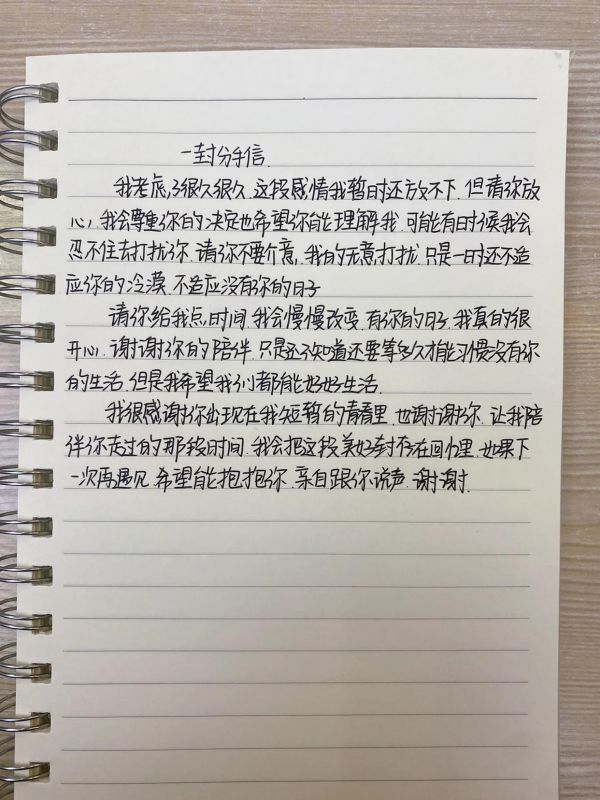 一封分手信.
我考虑了很久很久.这段感情我暂时还放不下.但请你放
心,我会尊重你的决定也希望你能理解我.可能有时候我会
忍不住去打扰你.请你不要介意,我的无意打扰.只是一时还不适
应你的冷漠.不适应没有你的日子
请你给我点时间.我会慢慢改变.有你的日子.我真的很
开心.谢谢你的陪伴.只是还不知道还要等多久才能习惯没有你
的生活.但是我希望我们都能好好生活.
我很感谢你出现在我短暂的青春里.也谢谢你.让我陪
伴你走过的那段时间.我会把这段美好封存在回忆里.如果下
一次再遇见.希望能抱抱你.亲自跟你说声.谢谢.